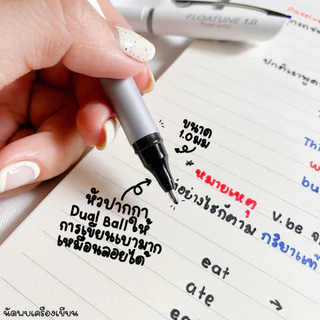 FLOATUNE 1.0
Passive
ปกติเราพูด
ขนาด
1.0 มม
Thi
w
bu
*หมายเหตุ
อย่างไรก็ตาม กริยาแท้
V.be
หัวปากกา
Dual Ball ให้
การเขียนเบามาก
เหมือนลอยได้
eat
ate
eat
→
นัดพบเครื่องเขียน